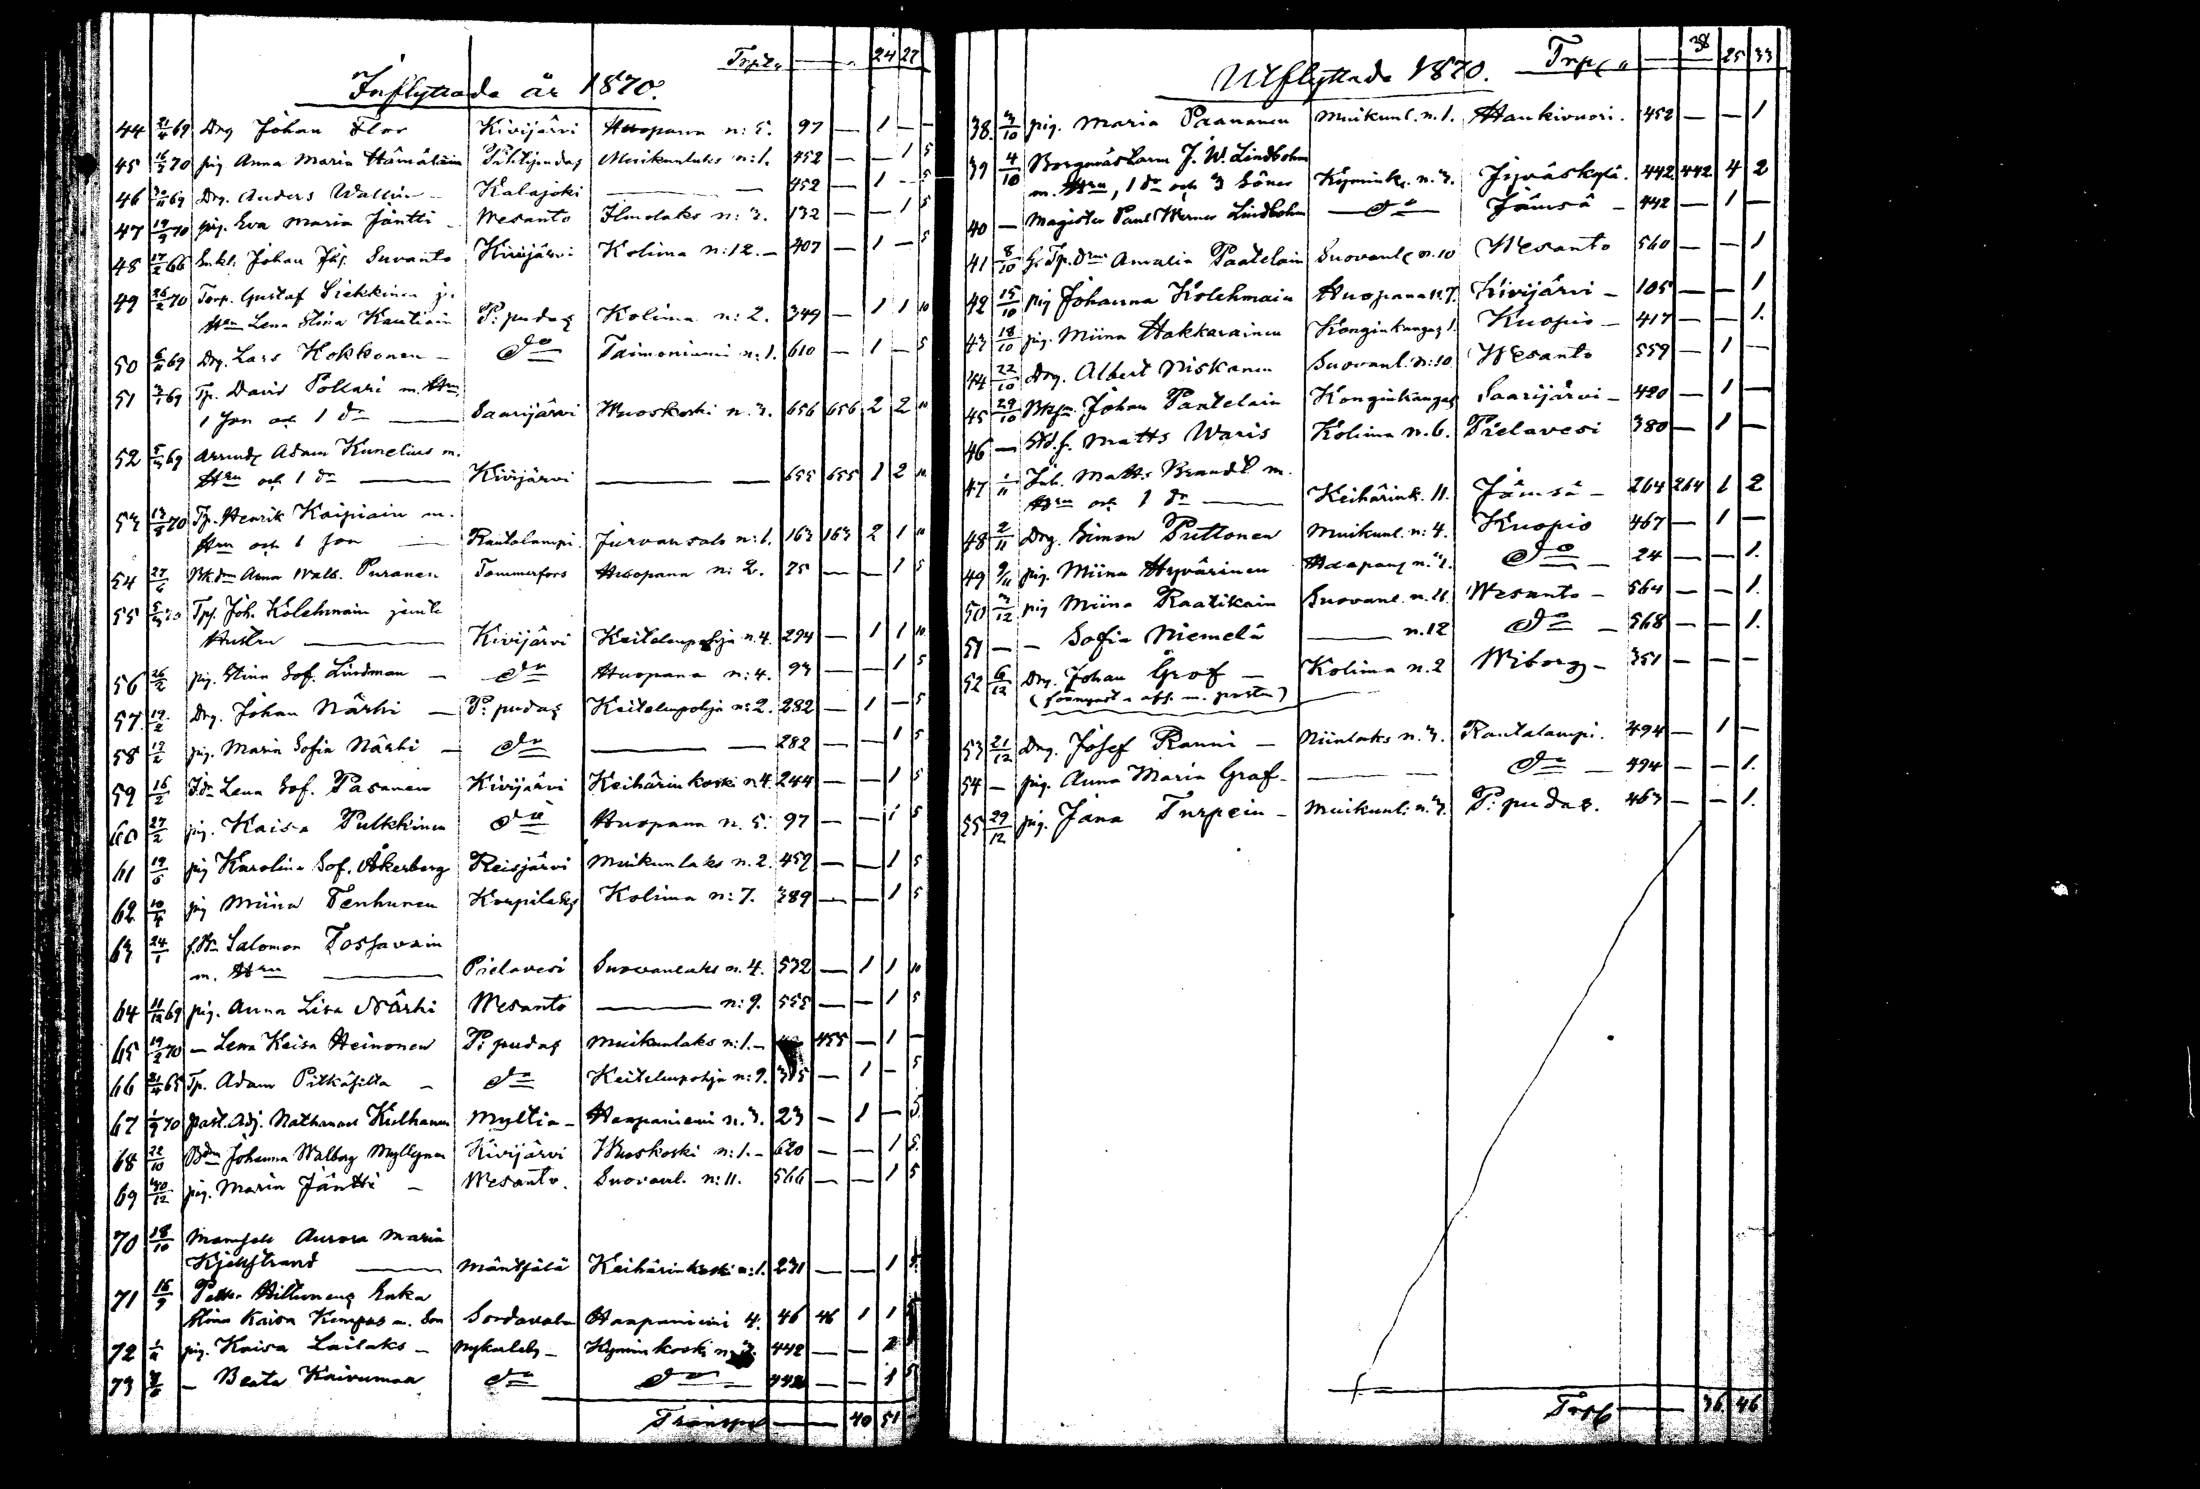 Inflyttade år 1870. Trpt. — „ 24 27
44 21/4 69 Drg Johan Flor Kivijärvi Huopana n: 5. 97 — 1 — —
45 16/2 70 pig. Anna Maria Hämäläin Pihtipudas Muikunlaks n: 1. 452 — — 1 5
46 30/11 69 Drg. Anders Wallin — Kalajoki — — 452 — 1 — 5
47 19/3 70 pig. Eva Maria Jäntti — Wesanto Ilmolaks n: 3. 132 — — 1 5
48 17/2 66 Enkl. Johan Suvanto Kivijärvi Kolima n: 12. — 407 — 1 — 5
49 26/2 70 Torp. Gustaf Siekkinen
Hru Lena Stina Kautiain P: pudas Kolima n: 2. 349 — 1 1 10
50 6/11 69 Drg. Lars Kokkonen — do Taimoniemi n: 1. 610 — 1 — 5
51 69 Tp. David Pollari m. Hru
1 son och 1 dr — Saarijärvi Wuoskoski n. 3. 656 656 2 2 10
52 69 Adam Kunelius m.
Hru och 1 dr — Kivijärvi — — 655 655 1 2 10
53 70 Tp. Henrik Kaipiain m.
Hru och 1 son — Rautalampi Jurvansalo n: 1. 163 163 2 1 10
54 27/6 Anna Walb. Puranen Tammerfors Huopana n: 2. 75 — — 1 5
55 Joh. Kolehmain jemte
Hustru — Kivijärvi Keitelenpohja n. 4. 294 — 1 1 10
56 26/2 pig. Stina Sof. Lindman — do Huopana n: 4. 93 — — 1 5
57. 19/2 Drg. Johan Närhi — P: pudas Keitelenpohja n: 2. 282 — 1 — 5
58 19/2 pig. Maria Sofia Närhi — do — — 282 — — 1 5
59 16/2 Lena Sof. Pasanen Kivijärvi Keihärinkoski n 4. 244 — — 1 5
60 27/2 pig. Kaisa Pulkkinen do Huopana n. 5. 97 — — 1 5
61 19/6 pig Karolina Sof. Åkerberg Reisjärvi Muikunlaks n. 2. 459 — — 1 5
62 10/4 pig Miina Tenhunen Korpilaks Kolima n: 7. 389 — — 1 5
63 24/1 Salomon Tossavain
m. Hru — Pielavesi Suovanlaks n. 4. 532 — 1 1 10
64 11/12 69 pig. Anna Lisa Närhi Wesanto — n: 9. 555 — — 1 5
65 19/2 70 — Lena Kaisa Heinonen P: pudas Muikunlaks n: 1. — 455 — 1 —
66 21/4 65 Tp. Adam Pitkäsilta — do Keitelenpohja n: 9. 315 — 1 — 5
67 1/9 70 Past. Adj. Nathanael Kielhanen Myltia — Haapaniemi n. 3. 23 — 1 — 5.
68 22/10 Johanna Walborg Myllynen Kivijärvi Wuoskoski n: 1. — 620 — — 1 5.
69 30/12 pig. Maria Jäntti — Wesanto. Suovanl. n: 11. 566 — — 1 5
70 18/10 Mamsell Aurora Maria
Kjellstrand — Mäntsälä Keihärinkoski n: 1. 231 — — 1 5.
71 16/9 Petter Hiltunens Enka
Stina Kaisa Kempas m. son Sordavala Haapaniemi 4. 46 46 1 1
72 pig. Kaisa Lailaks — Nykarleby — Kyminkoski n: 3. 442 — —
73 — Beata Kaivumaa do do 442 — — 1 5
Transpt — 40. 51
Utflyttade 1870. Trpt „ — 38 25 33
38. 3/10 pig. Maria Paananen Muikunl. n. 1. Haukivuori. 452 — — 1
39 4/10 Borgmästaren J. W. Lindbohm
m. Hru, 1 dr och 3 Söner Kymink. n. 3. Jyväskylä. 442 442 4 2
40 — Magister Paul Werner Lindbohm — do — Jämsä — 442 — 1 —
41 8/10 Amalia Paatelain Suovanl n. 10 Wesanto 560 — — 1
42 15/10 pig Johanna Kolehmain Huopana n. 7. Kivijärvi — 105 — — 1
43 18/10 pig. Miina Hakkarainen Konginkangas 1. Kuopio — 417 — — 1.
44 22/10 Drg. Albert Niskanen Suovanl. n: 10 Wesanto 559 — 1 —
45 29/10 Johan Paatelain Konginkangas Saarijärvi — 420 — 1 —
46 — Matts Waris Kolima n. 6. Pielavesi 380 — 1 —
47 1/11 Inh. Matts Brandt m.
Hru och 1 dr — Keihärink. 11. Jämsä — 264 264 1 2
48 2/11 Drg. Simon Puttonen Muikunl. n: 4. Kuopio 467 — 1 —
49 9/11 pig. Miina Hyvärinen Haapan n. 1. do — 24 — — 1.
50 3/12 pig Miina Raatikain Suovanl. n. 11. Wesanto — 564 — — 1.
51 — — Sofia Niemelä — n. 12 do — 568 — — 1.
52 6/12 Drg. Johan Grof — Kolima n. 2 Wiborg — 351 — — —
53 21/12 Drg. Josef Ranni — Niinilaks n. 3. Rautalampi. 494 — 1 —
54 — pig. Anna Maria Graf — — — do — 494 — — 1.
55 29/12 pig. Jana Turpein — Muikunl: n. 3. P: pudas. 463 — — 1.
Trpt — 36. 46